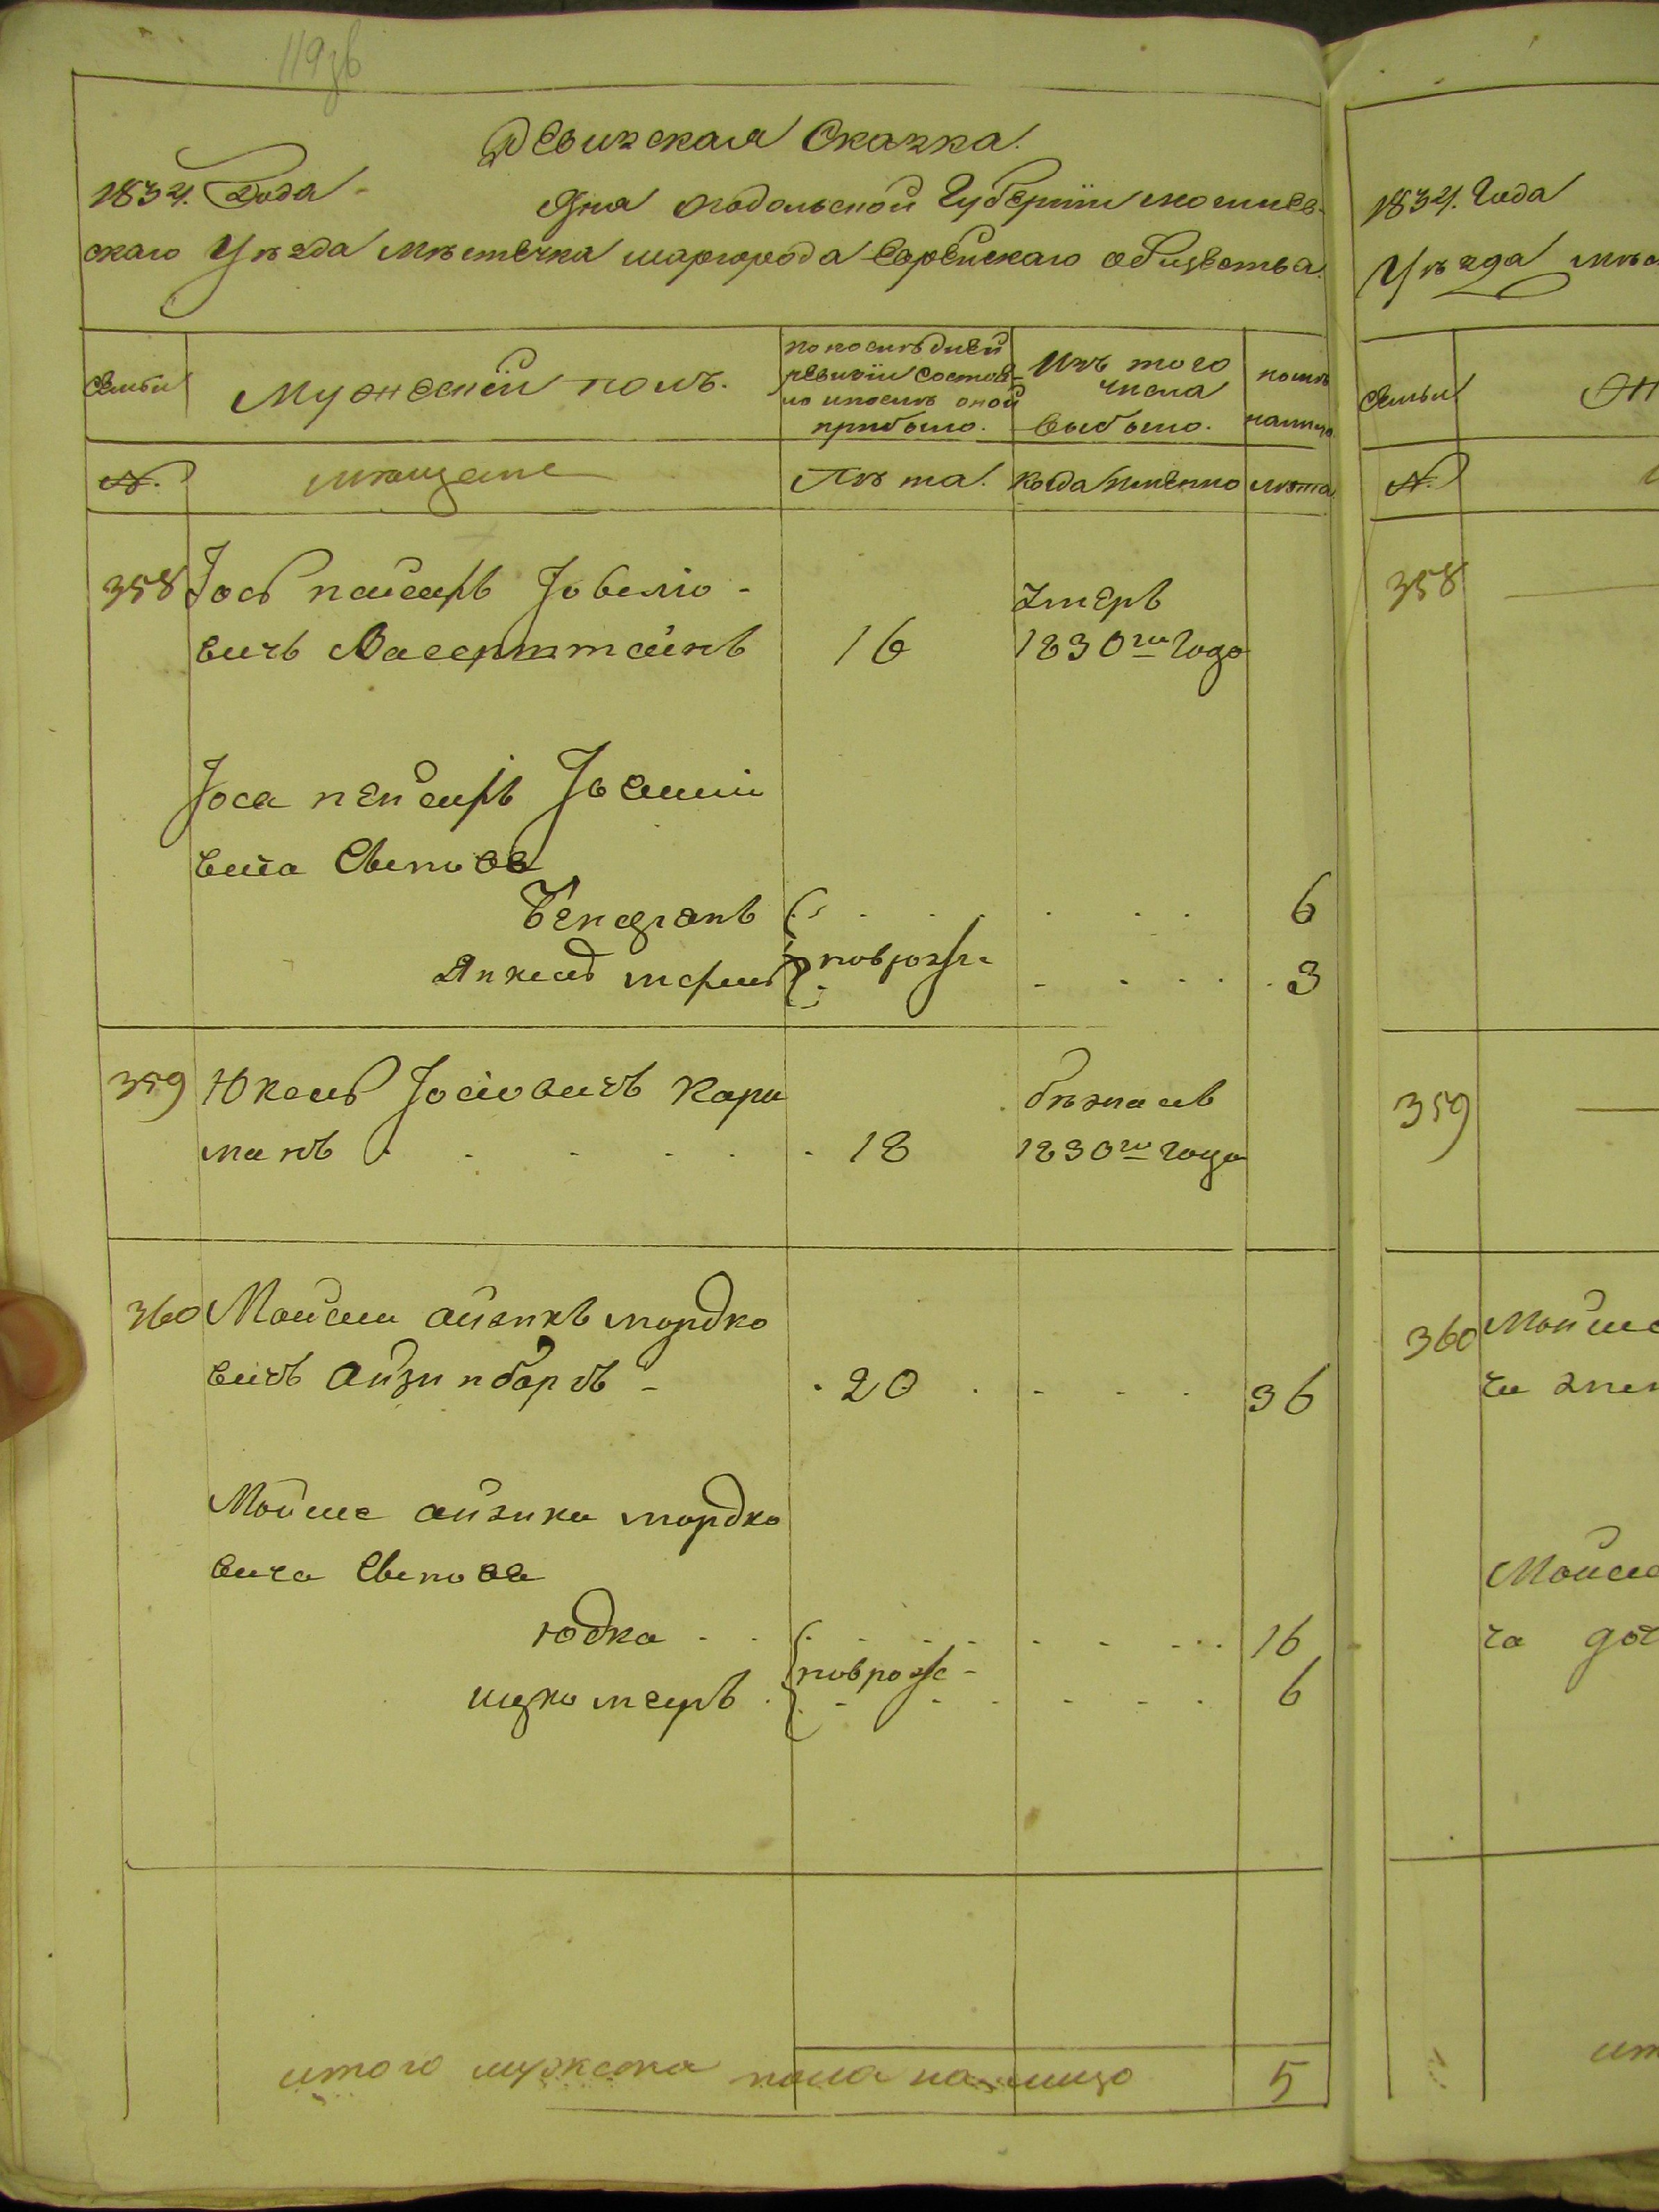 119 зв
Ревизская Сказка.
1834. Года Дня Подольской Губернии могилев-
скаго Уѣзда Мѣстечка шаргорода Еврейскаго общества.
Семьи
Мужескій полъ.
по послѣдней
ревизіи состоя-
ло и послѣ оной
прибыло.
Изъ того
числа
выбыло.
нынѣ
налицо
№.
мѣщане
Лѣта.
Когда именно
лѣта
358 Іось пейсахъ
вичъ Васерштейнъ 16
Умеръ
1830го Года
Іося пейсахъ
вича Сыновя
6
Янкель новорож. 3
359 Юкель Іосіовичъ Кори
манъ 18
бѣжалъ
1830го года
360 Мойше айзикъ мордко
вичъ айзинбергъ 20 36
Мойше айзика мордко
вича Сыновя
юдка 16
новорож
мееръ 6
итого мужеска пола налицо 5
1834. Года
Уѣзда мѣс
Семьи
№.
358
359
360 Мойше
ча жен
Мойше
ча доч
ит